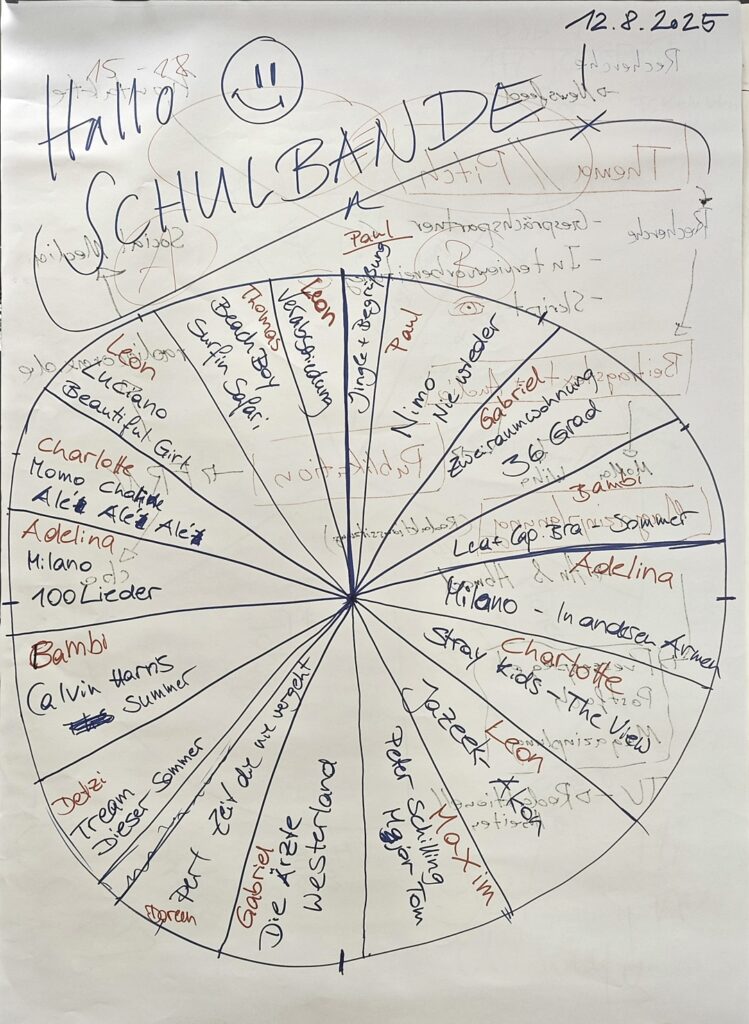 12.8.2025
Hallo
SCHULBANDE!
Paul
Jingle + Begrüßung
Paul
Nimo
Nie wieder
Gabriel
Zweiraumwohnung
36 Grad
Bambi
Lea + Cap Bra - Sommer
Adelina
Milano - In anderen Armen
Charlotte
Stray Kids - The View
Leon
Jazeek
Maxim
Peter Schilling
Major Tom
Gabriel
Die Ärzte
Westerland
Doreen
Pert
Zeit die nie vergeht
Denzi
Tream
Dieser Sommer
Bambi
Calvin Harris
Summer
Adelina
Milano
100 Lieder
Charlotte
Momo
Alé Alé Alé
Leon
Luciano
Beautiful Girl
Thomas
Beach Boy
Surfin Safari
Leon
Verabschiedung
Recherche
Newsfeed
Thema // Pitch
Recherche
- Gesprächspartner
- Interviewvorbereitung
- Skript
Social Media
Publikation